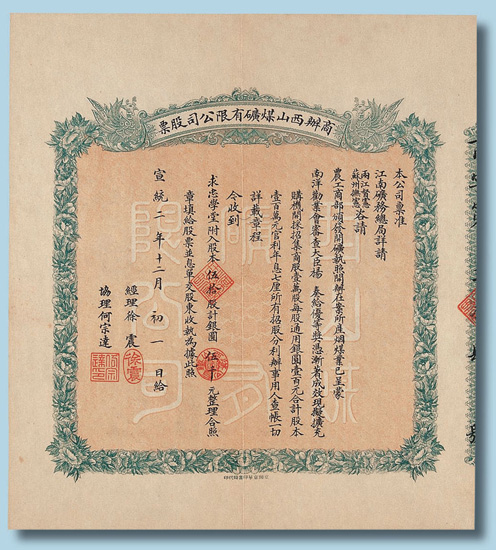 商辦西山煤礦有限公司股票
本公司票准
江南礦務總局詳請
兩江督憲
蘇州撫憲 咨請
農工商部頒發開礦執照開辦在案所產烟煤業已呈蒙
南洋勸業會審查大臣楊 奏給優等獎憑漸著成效現擬擴充
購機開採招集商股壹萬股每股通用銀圓壹百元合計股本
壹百萬元官利年息七厘所有招股分利辦事用人查帳一切
詳載章程
今收到
求忠學堂附入股本伍拾股計銀圓伍千元整理合照
章填給股票並息單交股東收執為據此照
宣統二年十二月初一日給
經理徐震
徐震
協理何宗逵